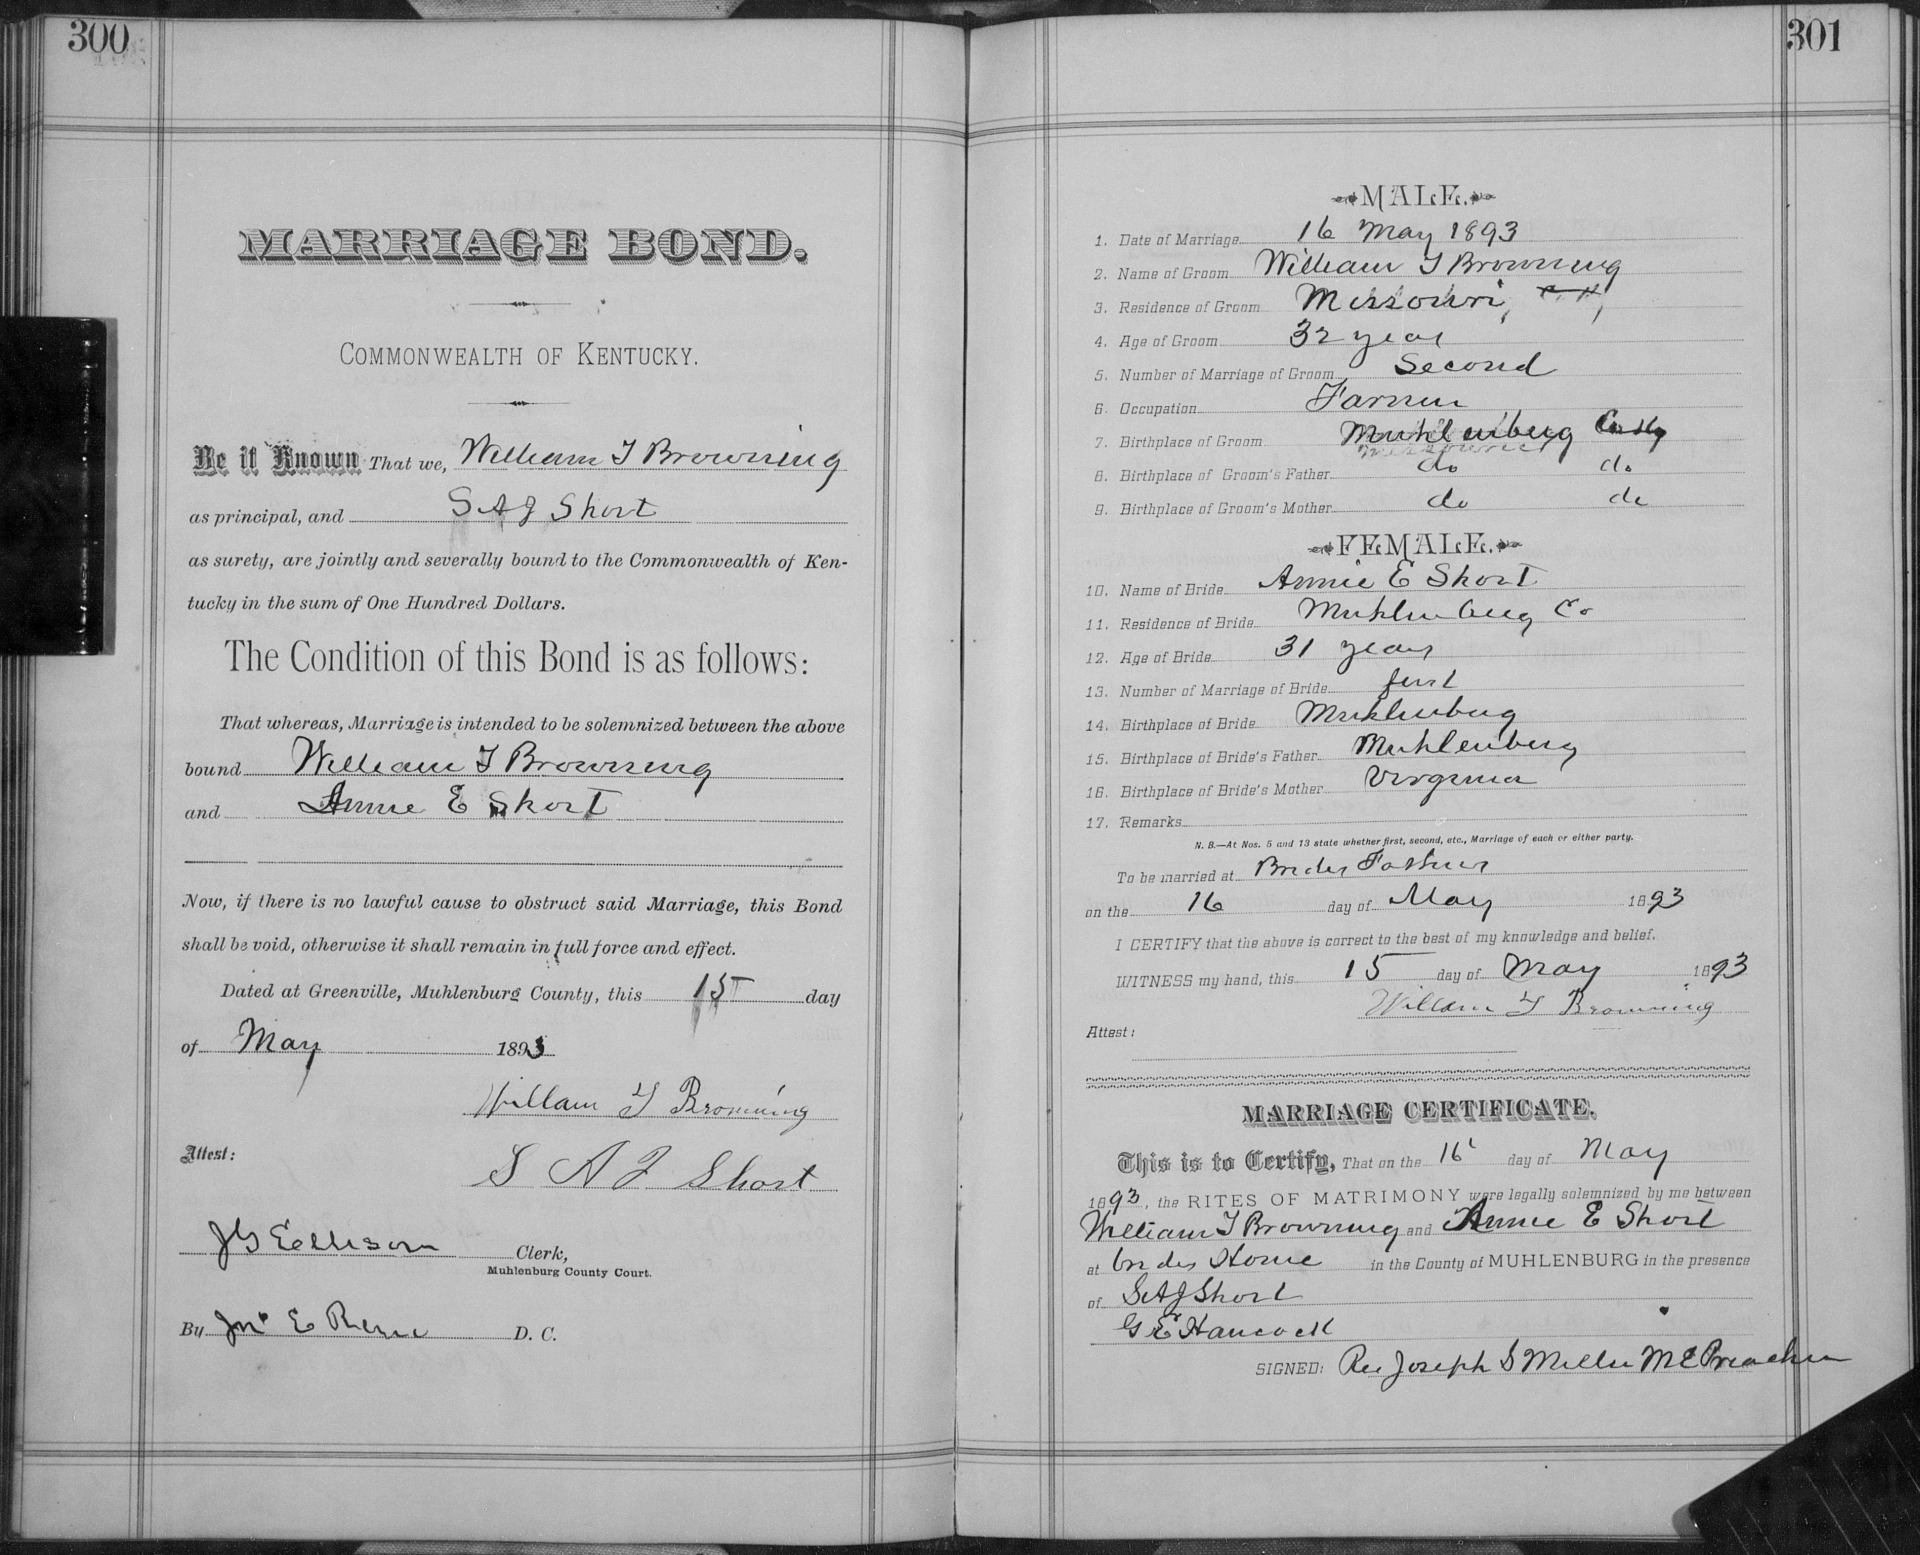 300
MARRIAGE BOND.
COMMONWEALTH OF KENTUCKY.
Be it Known That we, William T Browning
as principal, and S A J Short
as surety, are jointly and severally bound to the Commonwealth of Ken-
tucky in the sum of One Hundred Dollars.
The Condition of this Bond is as follows:
That whereas, Marriage is intended to be solemnized between the above
bound William T Browning
and Annie E Short
Now, if there is no lawful cause to obstruct said Marriage, this Bond
shall be void, otherwise it shall remain in full force and effect.
Dated at Greenville, Muhlenburg County, this 15 day
of May 1893
William T Browning
Attest:
S A J Short
J G Ellison Clerk,
Muhlenburg County Court.
By Jno E Reno D. C.
301
MALE.
1. Date of Marriage 16 May 1893
2. Name of Groom William T Browning
3. Residence of Groom Missouri,
4. Age of Groom 32 year
5. Number of Marriage of Groom Second
6. Occupation Farmer
7. Birthplace of Groom Muhlenburg Co Ky
8. Birthplace of Groom's Father do do
9. Birthplace of Groom's Mother do do
FEMALE.
10. Name of Bride Annie E Short
11. Residence of Bride Muhlenburg Co
12. Age of Bride 31 years
13. Number of Marriage of Bride first
14. Birthplace of Bride Muhlenburg
15. Birthplace of Bride's Father Muhlenburg
16. Birthplace of Bride's Mother Virginia
17. Remarks
N. B.—At Nos. 5 and 13 state whether first, second, etc., Marriage of each or either party.
To be married at Brides Fathers
on the 16 day of May 1893
I CERTIFY that the above is correct to the best of my knowledge and belief.
WITNESS my hand, this 15 day of May 1893
William T Browning
Attest:
MARRIAGE CERTIFICATE.
This is to Certify, That on the 16 day of May
1893, the RITES OF MATRIMONY were legally solemnized by me between
William T Browning and Annie E Short
at brides Home in the County of MUHLENBURG in the presence
of S A J Short
G E Hancock
SIGNED: Rev Joseph S Miller M E Preacher